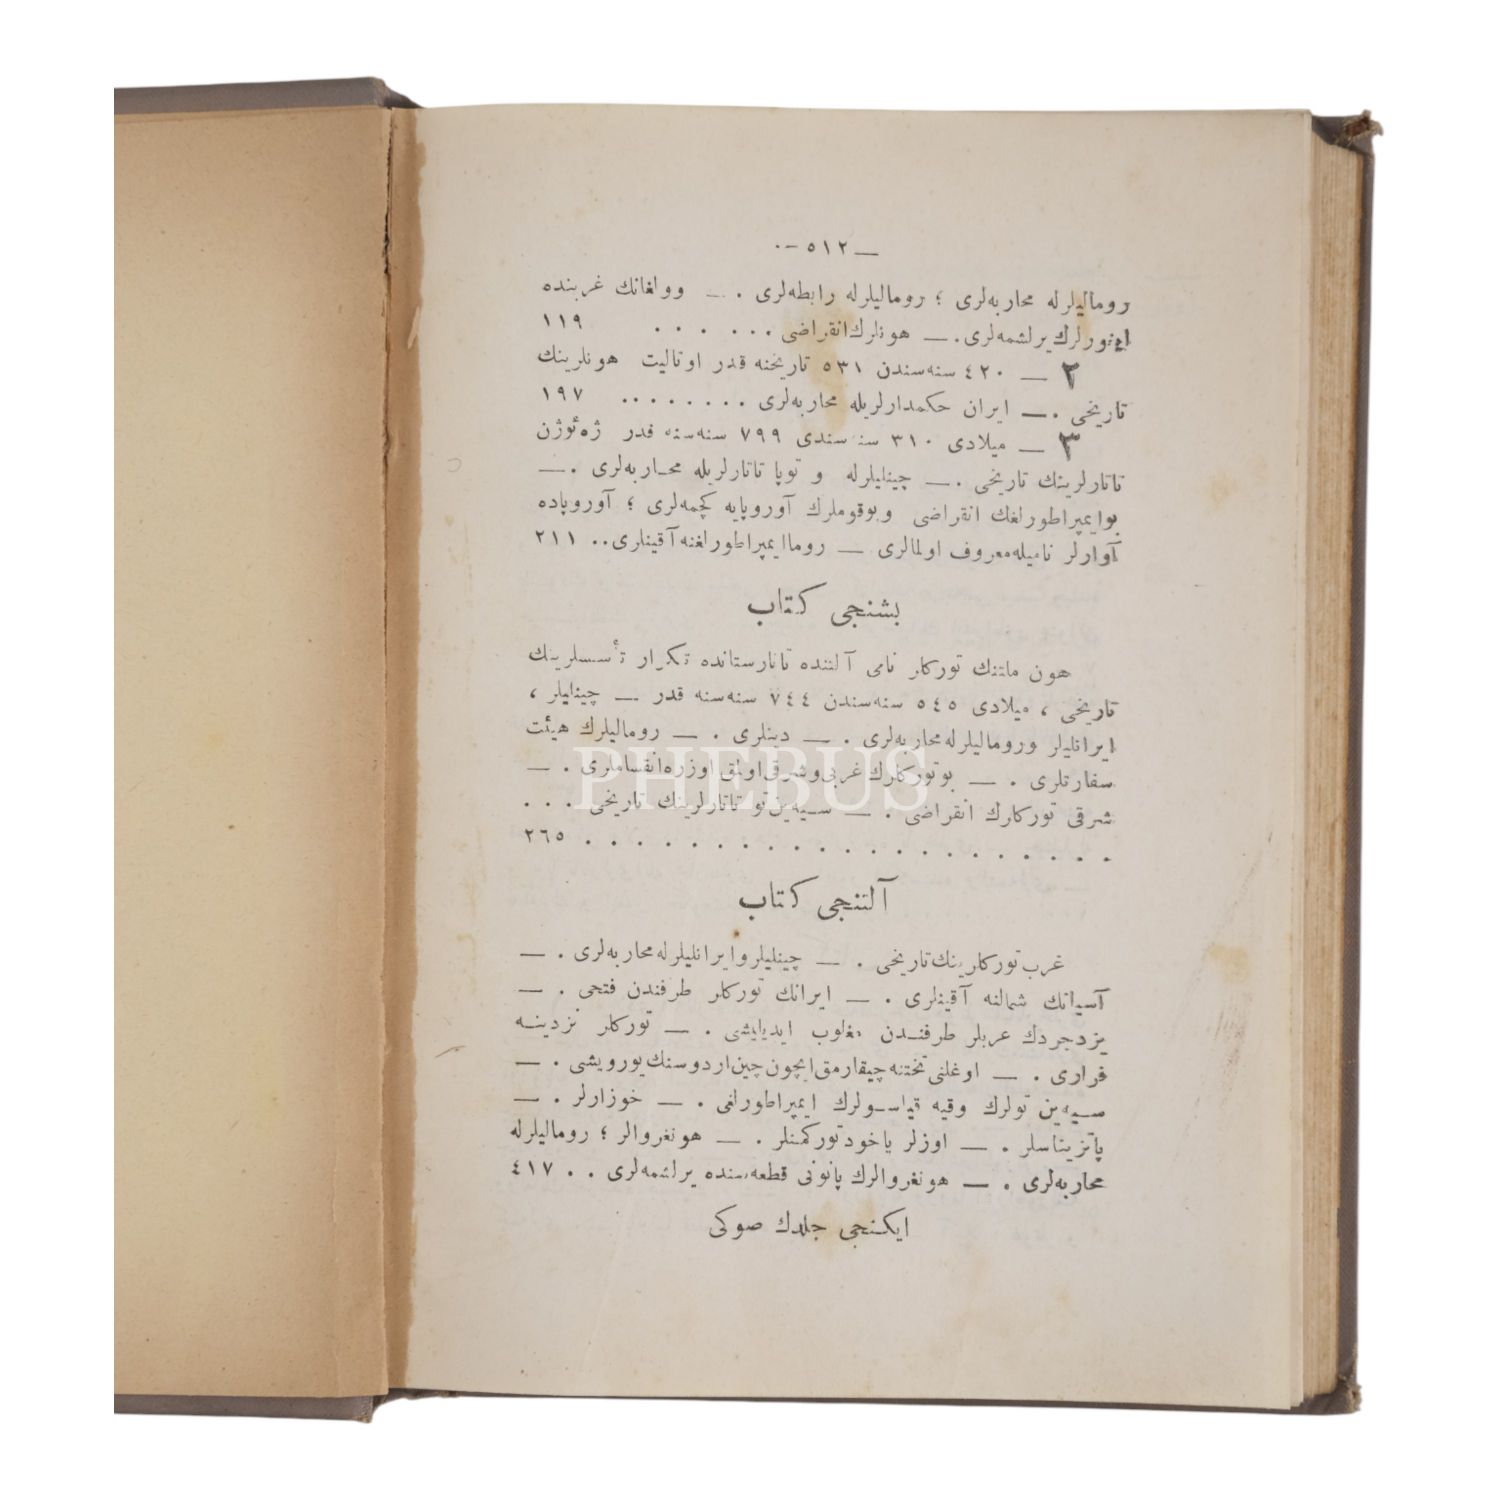 — ٥١٢ —
روماليلرله محاربه‌لرى ؛ روماليلرله رابطه‌لرى . — وولغانك غربنده
يرلشمه‌لرى . — هونلرك انقراضى . . . . . . . ١١٩
٢ — ٤٢٠ سنه‌سندن ٥٣١ تاريخنه قدر اوتاليت هونلرينك
تاريخى . — ايران حكمدارلريله محاربه‌لرى . . . . . . . . ١٩٧
٣ — ميلادى ٣١٠ سنه‌سندى ٧٩٩ سنه‌سنه قدر ژه‌ئوژن
تاتارلرينك تاريخى . — چينليلرله و توپا تاتارلريله محاربه‌لرى . —
بوايمپراطورلغك انقراضى وبوقوملرك آوروپايه كچمه‌لرى ؛ آوروپاده
آوارلر ناميله معروف اولمالرى — روما ايمپراطورلغنه آقينلرى . . ٢١١
بشنجى كتاب
هون ملتنك توركلر نامى آلتنده تاتارستانده تكرار تأسسلرينك
تاريخى ، ميلادى ٥٤٥ سنه‌سندن ٧٤٤ سنه‌سنه قدر — چينليلر ،
ايرانليلر وروماليلرله محاربه‌لرى . — دينلرى . — روماليلرك هيئت
سفارتلرى . — بو توركلرك غربى وشرقى اولمق اوزره انقساملرى . —
شرقى توركلرك انقراضى . — سيه‌ين‌تو تاتارلرينك تاريخى . . .
. . . . . . . . . . . . . . . . ٢٦٥
آلتنجى كتاب
غرب توركلرينك تاريخى . — چينليلر و ايرانليلرله محاربه‌لرى . —
آسيانك شمالنه آقينلرى . — ايرانك توركلر طرفندن فتحى . —
يزدجردك عربلر طرفندن مغلوب ايديليشى . — توركلر نزدينه
فرارى . — اوغلنى تختنه چيقارمق ايچون چين اردوسنك يورويشى . —
سيه‌ين تولرك وقيه قياسولرك ايمپراطورلغى . — خوزارلر . —
پاتزيناسلر . — اوزلر ياخود توركمنلر . — هونغروالر ؛ روماليلرله
محاربه‌لرى . — هونغروالرك پانونى قطعه‌سنده يرلشمه‌لرى . . ٤١٧
ايكنجى جلدك صوكى
PHEBUS